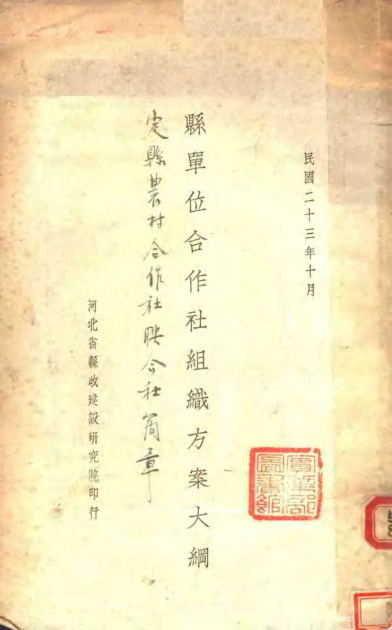 民國二十三年十月
縣單位合作社組織方案大綱
定縣農村合作社聯合社簡章
河北省縣政建設研究院印行
實業部
圖書館